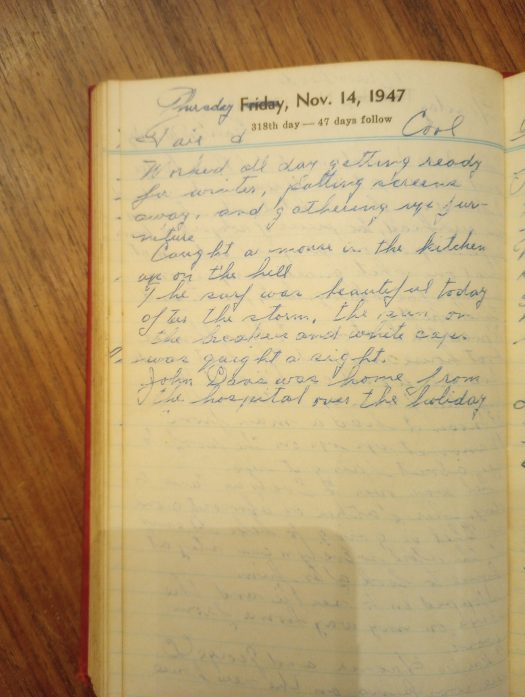 Thursday Friday, Nov. 14, 1947
318th day — 47 days follow
Fair d Cool
Worked all day getting ready
for winter, putting screens
away, and gathering up fur-
niture
Caught a mouse in the kitchen
up on the hill
The surf was beautiful today
after the storm, the sun on
the breakers and white caps
was quight a sight.
John was home from
the hospital over the holiday